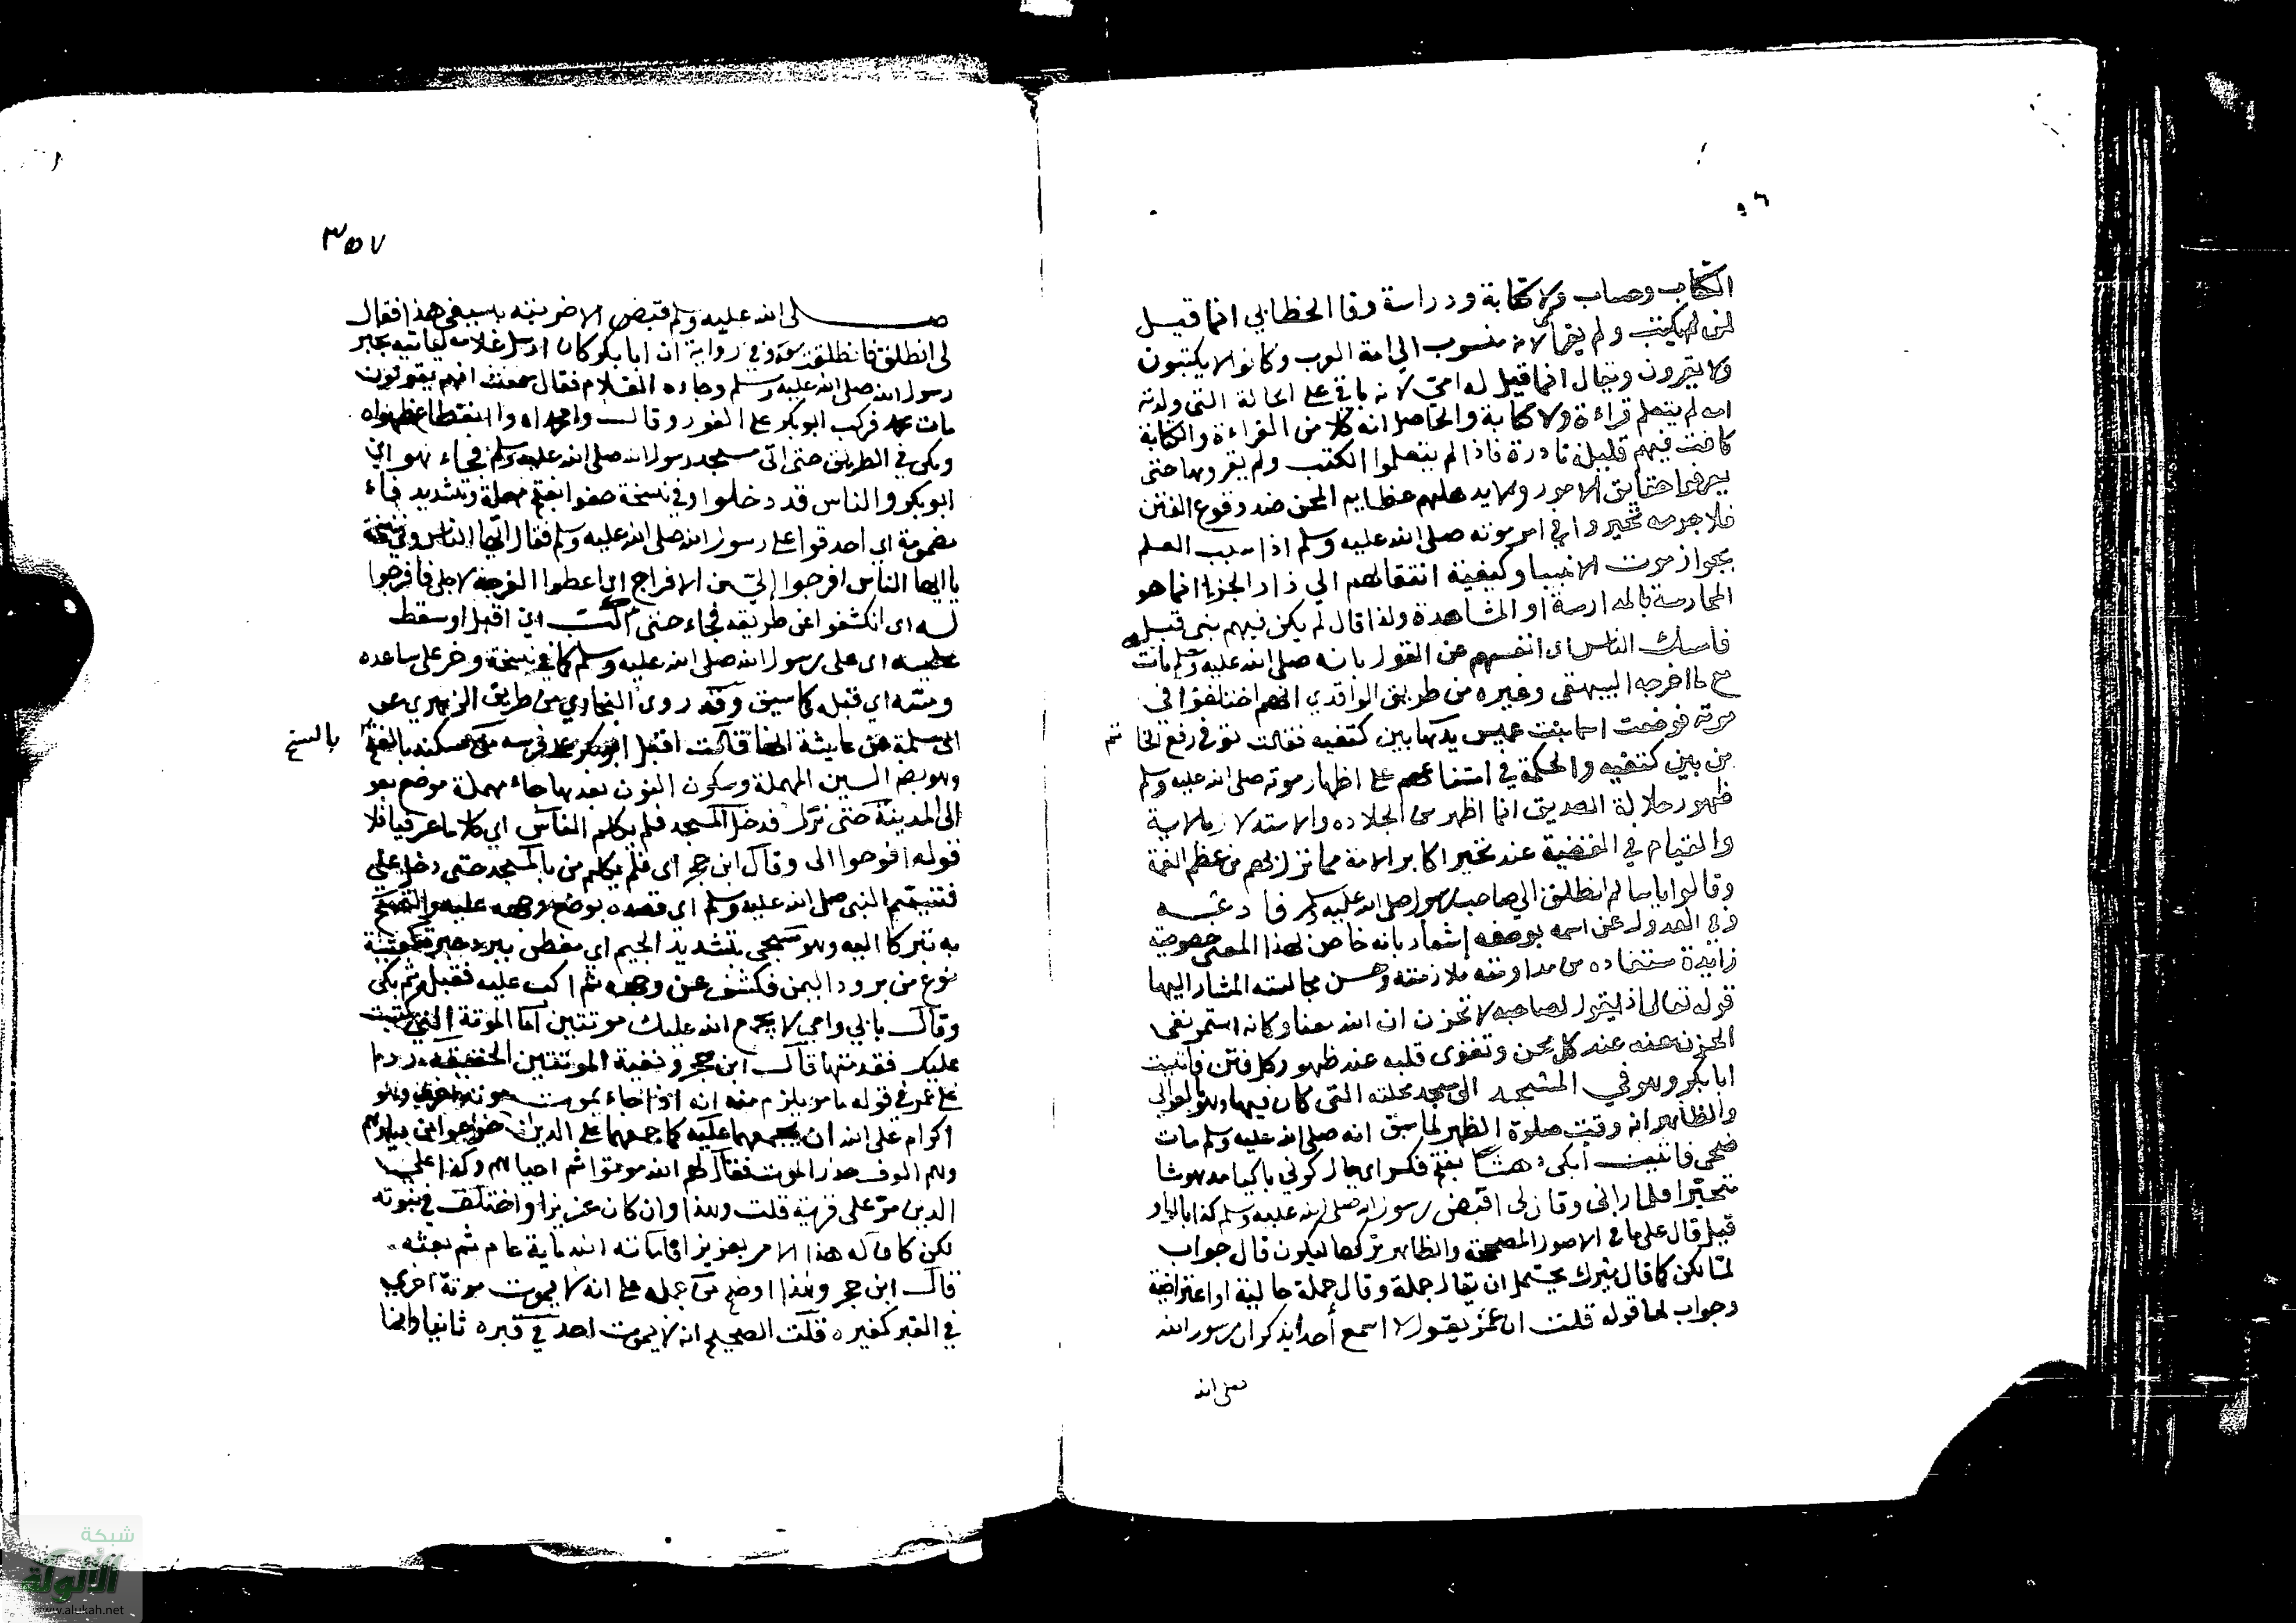 الكتاب وحساب ولا كتابة ودراسة وقا الخطابي انما قيل
لمن لم يكتب ولم يقرا لانه منسوب الي امة العرب وكانوا لا يكتبون
ولا يقرون ويقال انما قيل له امي لانه باق على الحالة التي ولدته
امه لم يتعلم قراءة ولا كتابة والحاصل انه كلا من القراءة والكتابة
كانت فيهم قليلة نادرة فاذا لم يتعلموا الكتب ولم يقروها حتى
يعرفوا حقايق الامور ولا يد عظايم المحن ضد وقوع الفتن
فلا جرمه تحيروا في امر موته صلى الله عليه وسلم اذا سبب العلم
بجواز موت الانبيا وكيفية انتقالهم الي دار الجزا انما هو
الممارسة بالمدارسة او المشاهدة ولذا قال لم يكن فيهم نبي قبله
فامسك الناس اى انفسهم عن القول بانه صلى الله عليه وسلم مات
مع ما اخرجه البيهقى وغيره من طريق الواقدي انهم اختلفوا فى
موته فوضعت اسما بنت عميس يدها بين كتفيه فقالت توفي رفع الخاتم
من بين كتفيه والحكمة في امتناعهم على اظهار موته صلى الله عليه وسلم
ظهور جلالة الصديق انما اظهر من الجلاده والاستدلال بالاية
والقيام في القضية عند تحير اكابر الامة مما نزل بهم من عظم الغمة
وقالوا يا سالم انطلق الي صاحب رسول الله صلى الله عليه وسلم فادعه
وفي العدول عن اسمه بوصفه إشعار بانه خاص لهذا المعنى خصوصية
زايدة مستفاده من مداومته ملازمته وحسن مجالسته المشار اليها
قوله تعالى اذ يقول لصاحبه لا تحزن ان الله معنا وكانه استمر نفى
الحزن عنه عند كل محن وتقوى قلبه عند ظهور كل فتن فاتيت
ابا بكر وهو في المسجد اى مسجد محلته التي كان فيها وهو بالعوالى
والظاهر انه وقت صلوة الظهر لما سبق انه صلى الله عليه وسلم مات
ضحى فاتيت ابكى دهشا بفتح فكسر اى حال كوني باكيا مدهوشا
متحيرا فلما رانى وقال لى اقبض رسول الله صلى الله عليه وسلم كذا بالواو
قبل قال على ما فى الاصول المصححة والظاهر تركها ليكون قال جواب
لما لكن كا قال ميرك يحتمل ان يقال جملة وقال جملة حالية او اعتراضية
وجواب لما قوله قلت ان عمر يقول لا اسمع أحدا يذكر ان رسول الله
صلى الله
٣٥٧
صلى الله عليه وسلم قبض الا ضربته بسيفى هذا فقال
لى انطلق فانطلقت معه وفي رواية ان ابا بكر كان ارسل غلامه ليأتيه بخبر
رسول الله صلى الله عليه وسلم وجاءه الغلام فقال سمعت انهم يقولون
مات محمد فركب ابو بكر على الفور وقال وامحمداه وا انقطاع ظهراه
وبكى في الطريق حتى اتى مسجد رسول الله صلى الله عليه وسلم فجاء هو اي
ابو بكر والناس قد دخلوا وفي نسخة حفوا بفتح مهملة وتشديد فاء
مضمومة اي احدقوا على رسول الله صلى الله عليه وسلم فقال ايها الناس وفي نسخة
يا ايها الناس افرجوا إلي من الافراج اى اعطوا الفرجة لاجلى فافرجوا
له اى انكشفوا عن طريقه فجاء حتى اكب اي اقبل او سقط
عليه اى على رسول الله صلى الله عليه وسلم كما في نسخة وخر على ساعده
ومسه اي قبله كما سبق وقد روى البخاري من طريق الزهري عن
ابى سلمة عن عايشة انها قالت اقبل ابو بكر على فرسه من مسكنه بالسنح
وهو بضم السين المهملة وسكون النون بعدها حاء مهملة موضع بعو
الى المدينة حتى نزل فدخل المسجد فلم يكلم الناس اي كلاما عرفيا فلا
قوله افرجوا الى وقال ابن حجر اى فلم يكلم من بالمسجد حتى دخل على
فتيمم النبى صلى الله عليه وسلم اى قصده بوضع وجهه عليه والتمسح
به تبركا اليه وهو مسجى بتشديد الجيم اي مغطى ببرد حبرة كعنبة
نوع من برود اليمن فكشف عن وجهه ثم اكب عليه فقبله ثم بكى
وقال بابي وامي لا يجمع الله عليك موتتين اما الموتة التى كتبت
عليك فقد متها قال ابن حجر ونفية الموتتين الحقيقة ردا
على عمر في قوله ما مر يلزم منه انه اذا جاء يموت موتة اخرى وهو
اكرم على الله ان يجمعهما عليه كما جمعهما على الذين خرجوا من ديارهم
وهم الوف حذر الموت فقال لهم الله موتوا ثم احياهم وكذا على
الذى مر على قرية قلت وهذا وان كان عزيزا واختلف في نبوته
لكن كا قاله هذا الامر بعزيز اماته الله ماية عام ثم بعثه
قال ابن حجر وهذا اوضح من حمله على انه لا يموت موتة اخري
في القبر كغيره قلت الصحيح انه لا يموت احد في قبره ثانيا وانما
بالسنح
شبكة
الألوكة
www.alukah.net